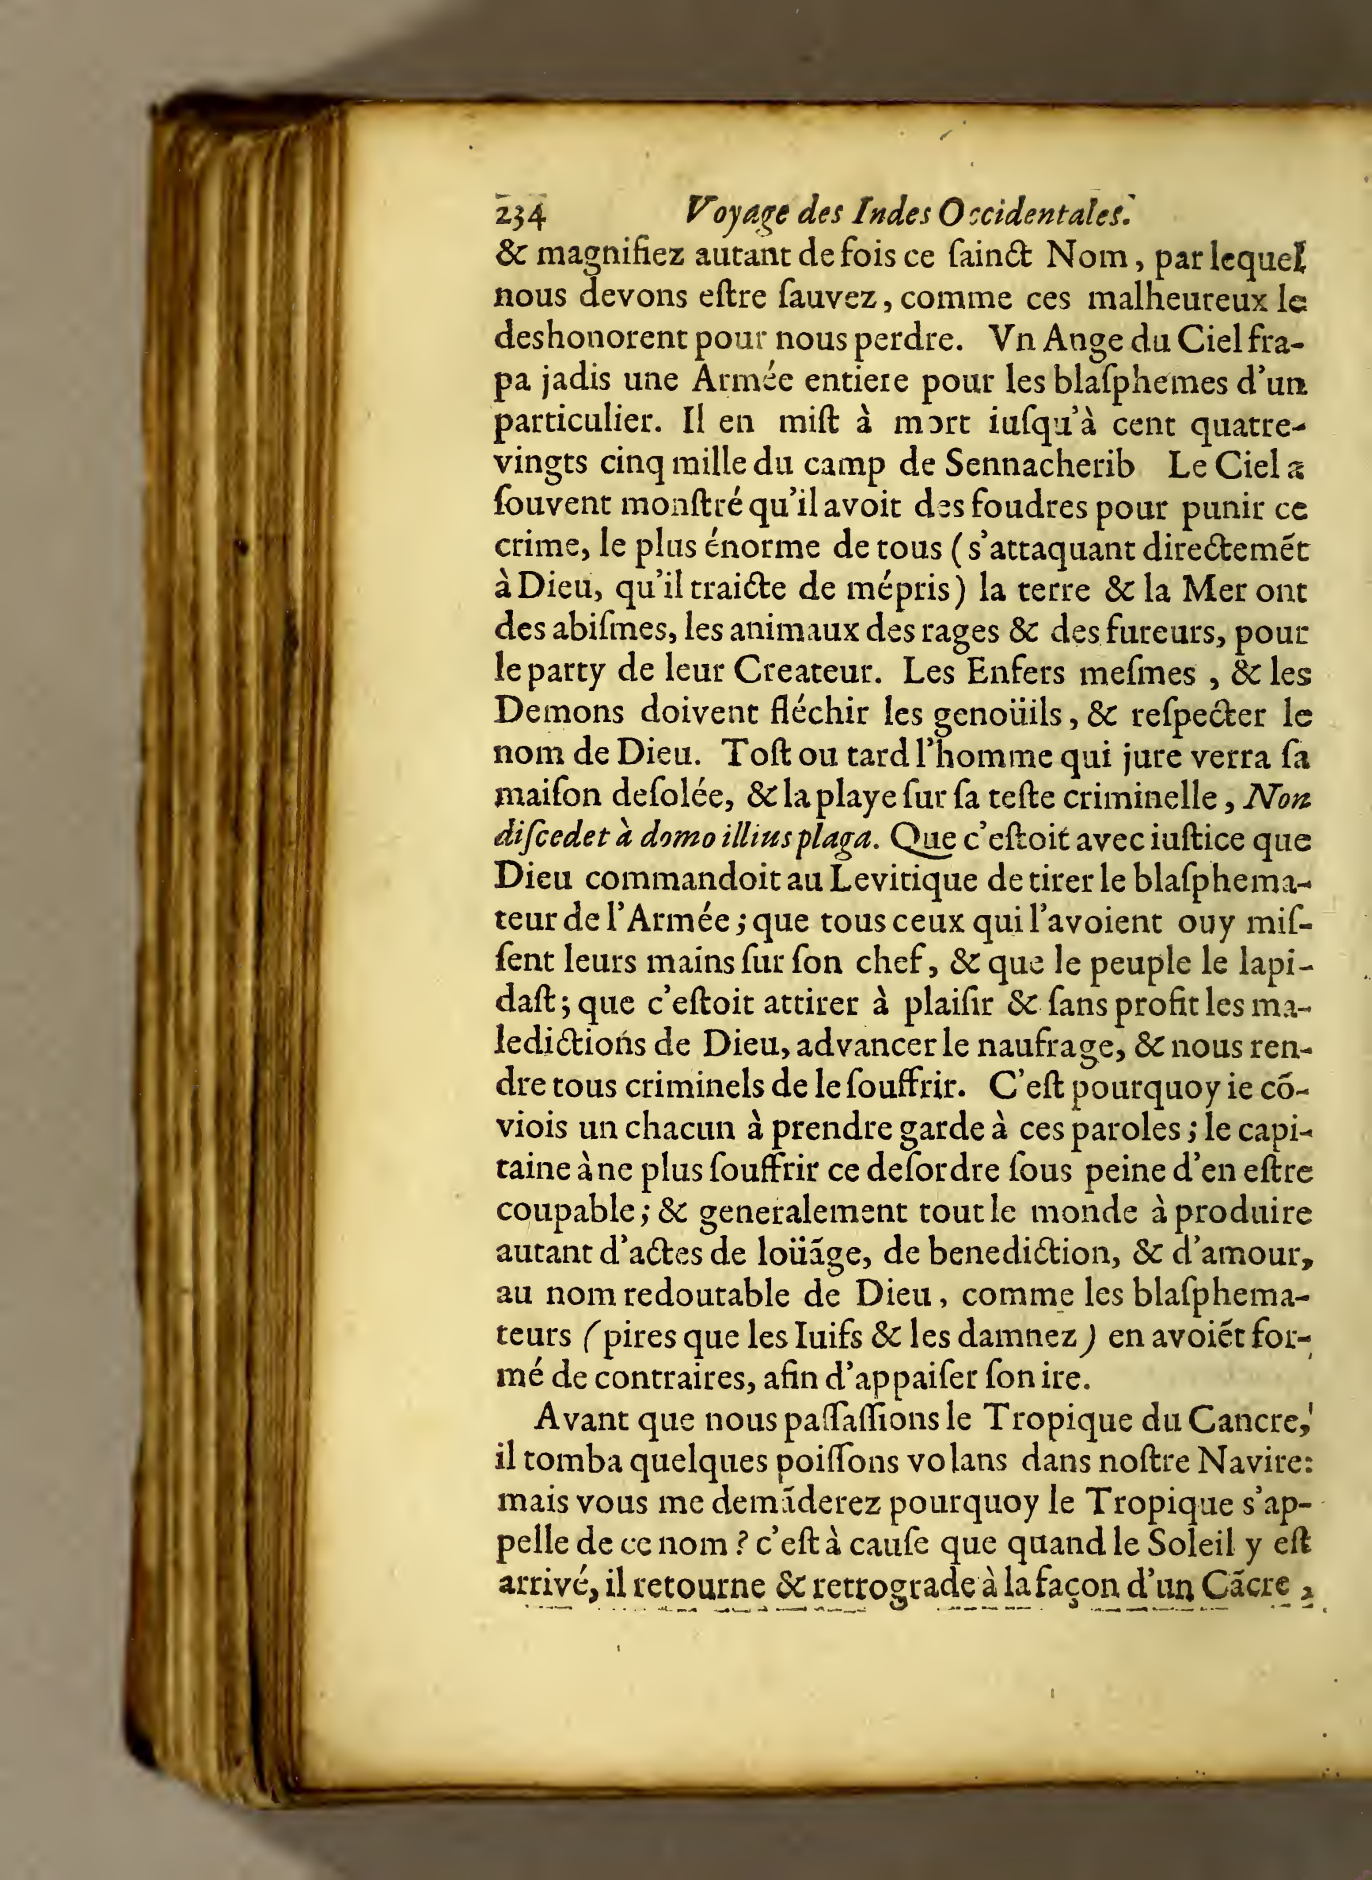 234 Voyage des Indes Occidentales.
& magnifiez autant de fois ce ſainct Nom, par lequel
nous devons eſtre ſauvez, comme ces malheureux le
deshonorent pour nous perdre. Vn Ange du Ciel fra-
pa jadis une Armée entiere pour les blaſphemes d'un
particulier. Il en miſt à mort iuſqu'à cent quatre-
vingts cinq mille du camp de Sennacherib Le Ciel a
ſouvent monſtré qu'il avoit des foudres pour punir ce
crime, le plus énorme de tous (s'attaquant directemẽt
à Dieu, qu'il traicte de mépris) la terre & la Mer ont
des abiſmes, les animaux des rages & des fureurs, pour
le party de leur Createur. Les Enfers meſmes, & les
Demons doivent fléchir les genoüils, & reſpecter le
nom de Dieu. Toſt ou tard l'homme qui jure verra ſa
maiſon deſolée, & la playe ſur ſa teſte criminelle, Non
diſcedet à domo illius plaga. Que c'eſtoit avec iuſtice que
Dieu commandoit au Levitique de tirer le blaſphema-
teur de l'Armée; que tous ceux qui l'avoient ouy miſ-
ſent leurs mains ſur ſon chef, & que le peuple le lapi-
daſt; que c'eſtoit attirer à plaiſir & ſans profit les ma-
ledictions de Dieu, advancer le naufrage, & nous ren-
dre tous criminels de le ſouffrir. C'eſt pourquoy ie cõ-
viois un chacun à prendre garde à ces paroles; le capi-
taine à ne plus ſouffrir ce deſordre ſous peine d'en eſtre
coupable; & generalement tout le monde à produire
autant d'actes de loüãge, de benediction, & d'amour,
au nom redoutable de Dieu, comme les blaſphema-
teurs (pires que les Iuifs & les damnez) en avoiẽt for-
mé de contraires, afin d'appaiſer ſon ire.
Avant que nous paſſaſſions le Tropique du Cancre,
il tomba quelques poiſſons volans dans noſtre Navire:
mais vous me demãderez pourquoy le Tropique s'ap-
pelle de ce nom? c'eſt à cauſe que quand le Soleil y eſt
arrivé, il retourne & retrograde à la façon d'un Cãcre,